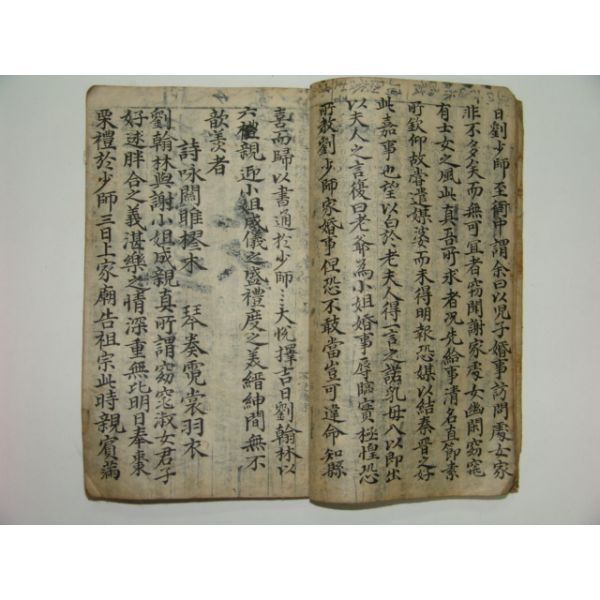 日劉少師至衙中謂余曰以児子婚事訪問處女家
非不多矣而無可宜者窃聞謝家處女幽閑窈窕
有士女之風此真吾所求者况先給事清名直節素
所欽仰故嘗遣媒婆而未得明報恐媒以結秦晋之好
此嘉事也望以白於老夫人得一言之諾乳母入以即出
以夫人之言復曰老爺為小姐婚事辱臨實極惶恐
所教劉少師家婚事但恐不敢當豈可違命知縣
喜而歸以書通於少師〻〻大悅擇吉日劉翰林以
六禮親迎小姐威儀之盛禮度之美縉紳間無不
歆羡者
詩咏關雎樛木 琴奏霓裳羽衣
劉翰林與謝小姐成親真所謂窈窕淑女君子
好逑胖合之義湛樂之情深重無比明日奉棗
栗禮於少師三日上家廟告祖宗此時親賓滿